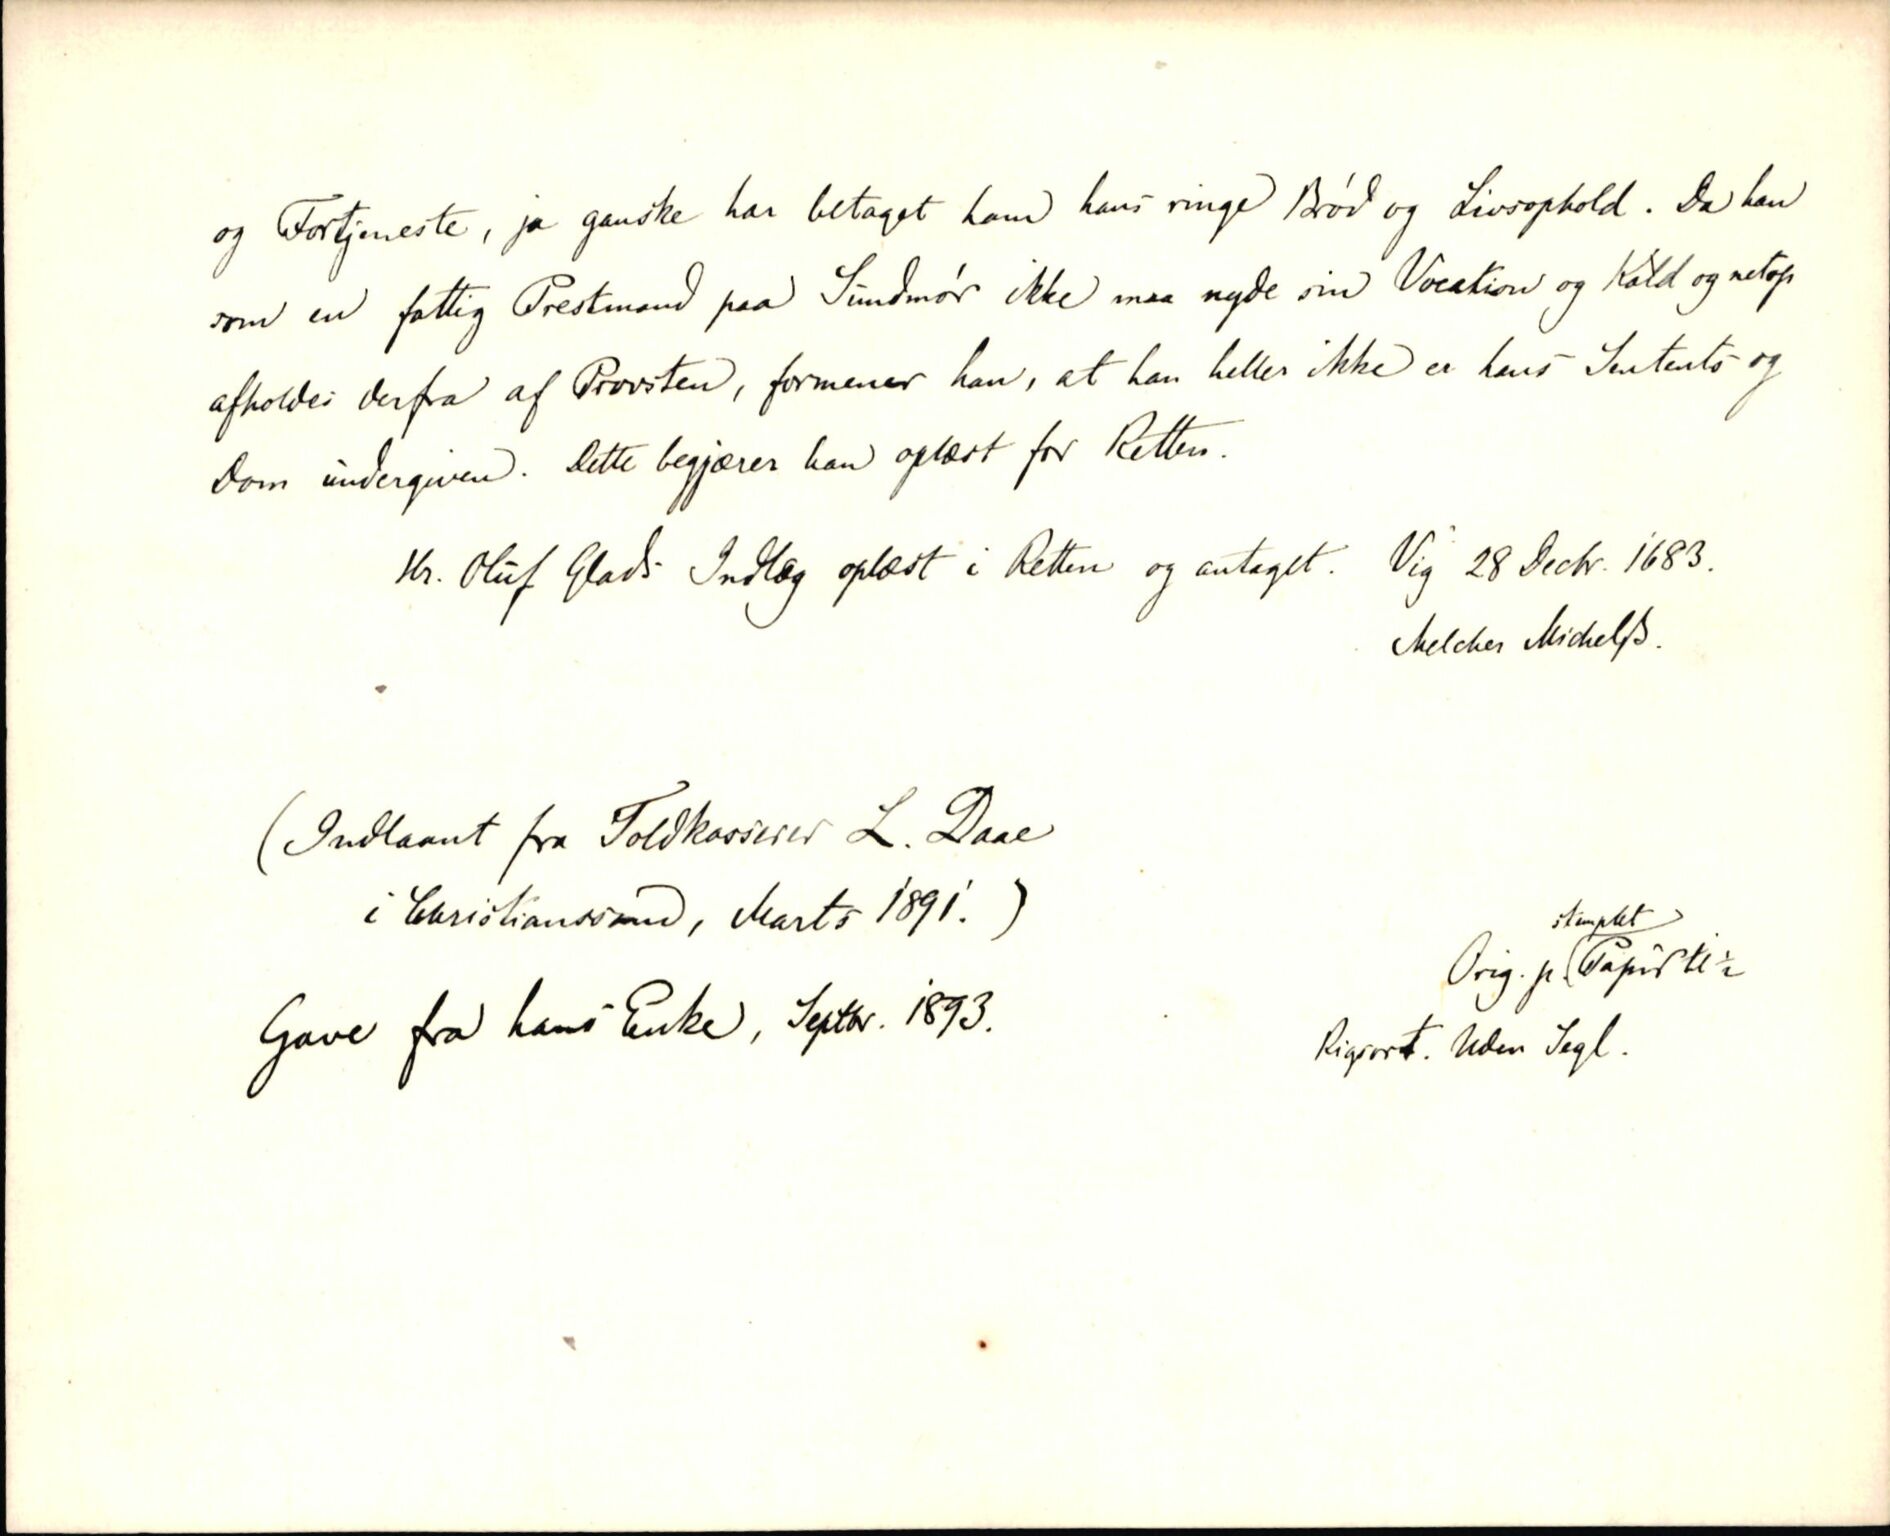 og Fortjeneste, ja ganske har betaget ham hans ringe Brød og Livsophold. Da han
som en fattig Prestmand paa Sundmør ikke maa nyde sin Vocation og Kald og netop
afholdes derfra af Provsten, formener han, at han heller ikke er hans Sentents og
Dom undergiven. Dette begjærer han oplæst for Retten.
Hr. Oluf Glads Indlæg oplæst i Retten og antaget. Vig 28 Decbr. 1683.
Melcher Michelsß.
(Indlaant fra Toldkasserer L. Daae
i Christianssund, Marts 1891.)
Gave fra hans Enke, Septbr. 1893.
stemplet
Orig. p. Papir til ½
Rigsort. Uden Segl.